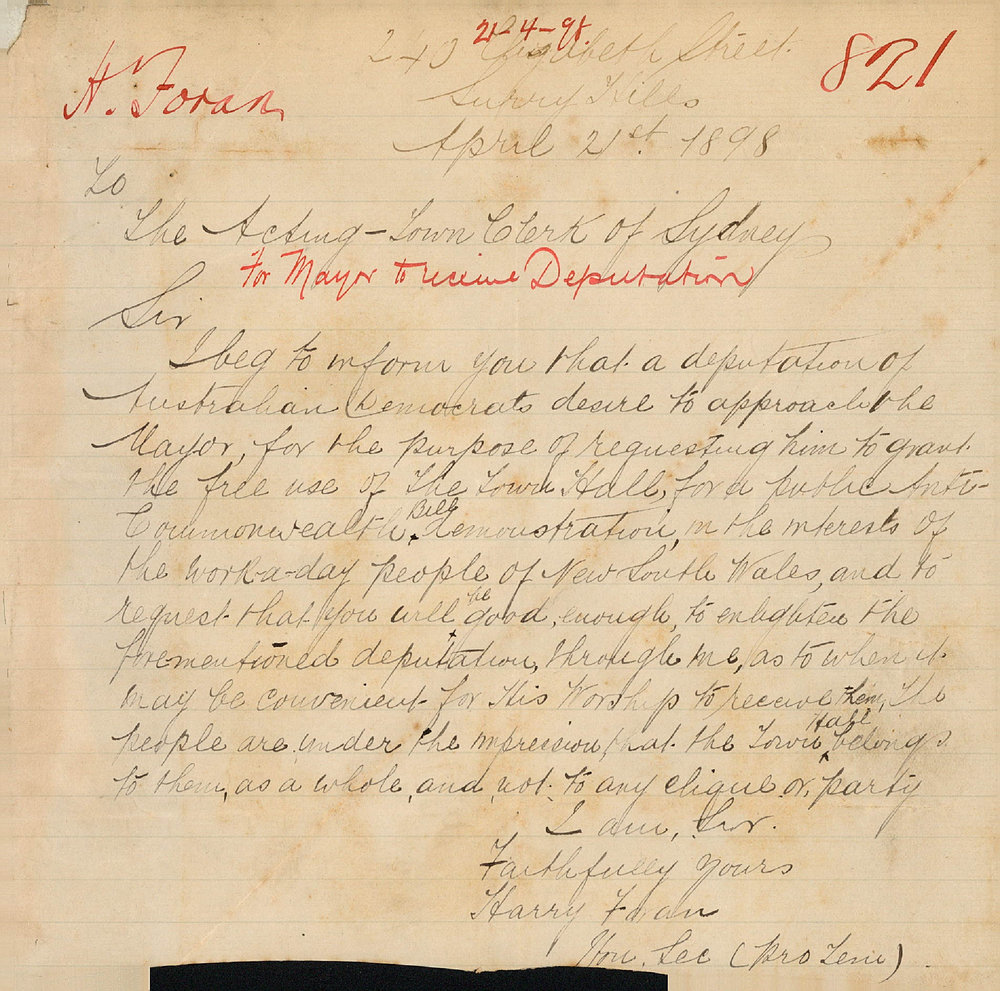 21-4-98.
H. Foran
821
243 Elizabeth Street.
Surry Hills
April 21st. 1898
To
The Acting-Town Clerk of Sydney
For Mayor to receive Deputation
Sir
I beg to inform you that a deputation of
Australian Democrats desire to approach the
Mayor, for the purpose of requesting him to grant
the free use of The Town Hall, for a public Anti-
Commonwealth Bill demonstration, in the interests of
the work-a-day people of New South Wales, and to
request that you will be good, enough, to enlighten the
forementioned deputation, through me, as to when it
may be convenient for His Worship to receive them, The
people are, under the impression, that the Town Hall belongs
to them, as a whole, and, not to any clique or, party
I am, Sir.
Faithfully yours
Harry Foran
Hon. Sec (pro Tem)